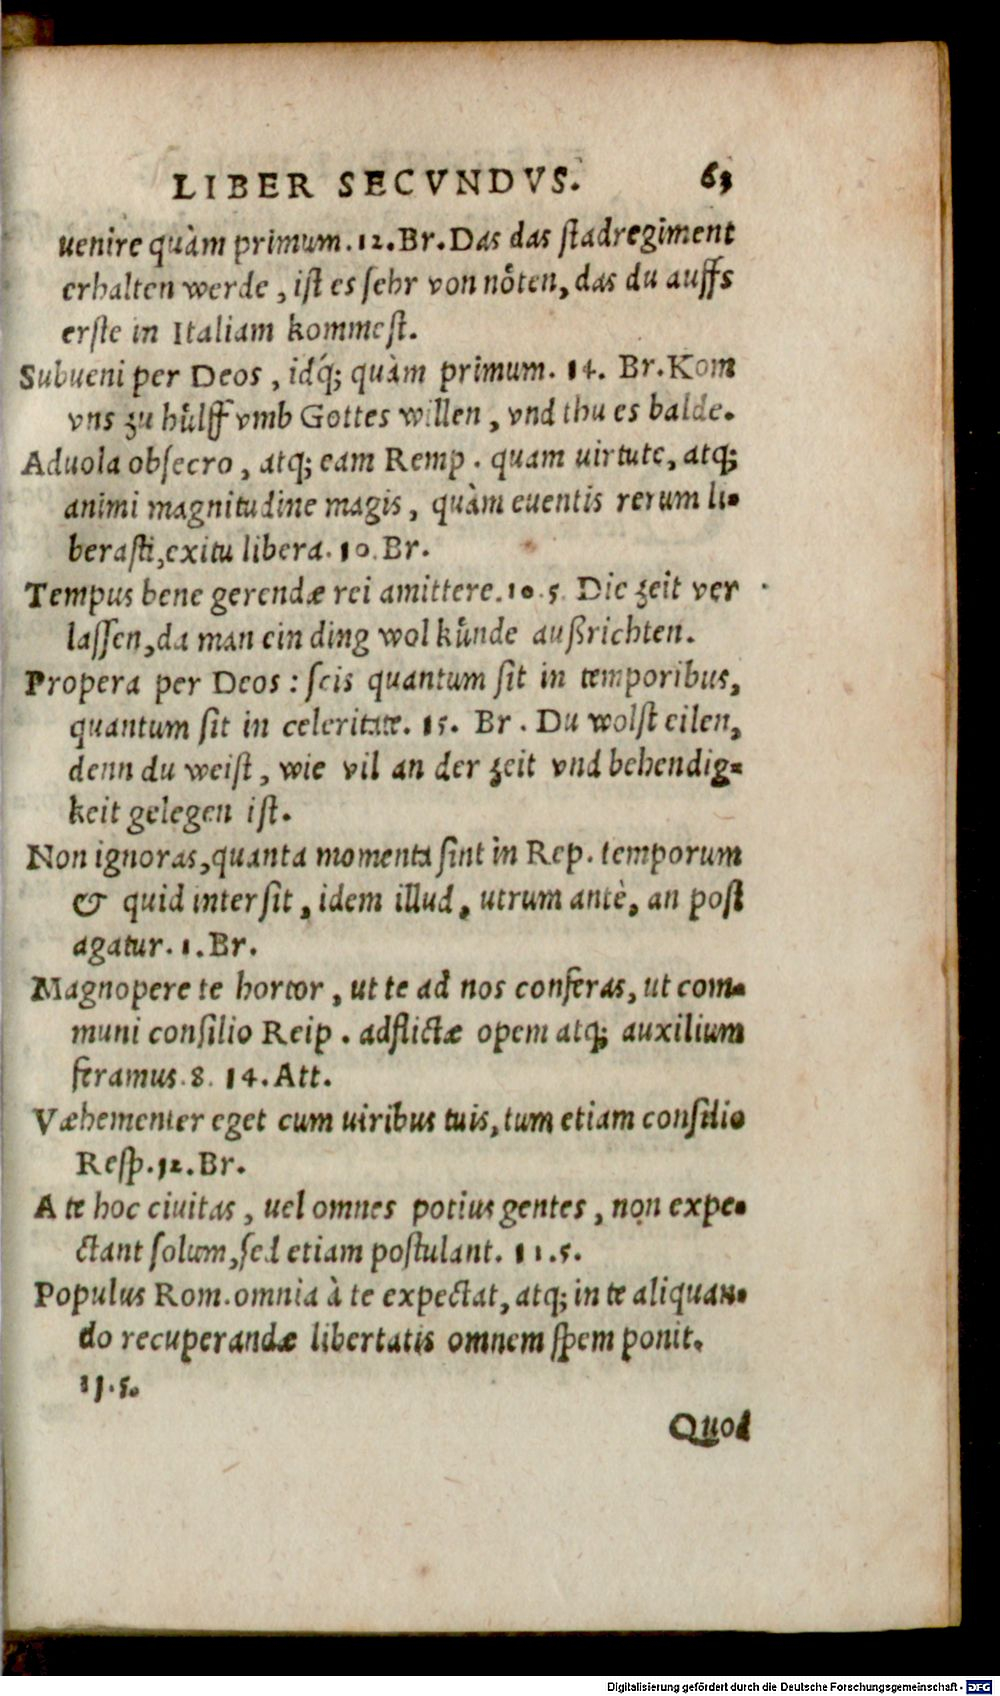 LIBER SECVNDVS. 63
uenire quàm primum. 12. Br. Das das ſtadregiment
erhalten werde, iſt es ſehr von nöten, das du auffs
erſte in Italiam kommeſt.
Subueni per Deos, idq́; quàm primum. 14. Br. Kom
vns zu hülff vmb Gottes willen, vnd thu es balde.
Aduola obſecro, atq; eam Remp. quam uirtute, atq;
animi magnitudine magis, quàm euentis rerum li-
beraſti, exitu libera. 10. Br.
Tempus bene gerendæ rei amittere. 10. 5. Die zeit ver
laſſen, da man ein ding wol künde außrichten.
Propera per Deos: ſcis quantum ſit in temporibus,
quantum ſit in celeritate. 15. Br. Du wolſt eilen,
denn du weiſt, wie vil an der zeit vnd behendig=
keit gelegen iſt.
Non ignoras, quanta momenta ſint in Rep. temporum
& quid interſit, idem illud, utrum antè, an poſt
agatur. 1. Br.
Magnopere te hortor, ut te ad nos conferas, ut com-
muni conſilio Reip. adflictæ opem atq; auxilium
feramus. 8. 14. Att.
Væhementer eget cum uiribus tuis, tum etiam conſilio
Reſp. 12. Br.
A te hoc ciuitas, uel omnes potius gentes, non expe-
ctant ſolum, ſed etiam poſtulant. 11. 5.
Populus Rom. omnia à te expectat, atq; in te aliquan-
do recuperandæ libertatis omnem ſpem ponit.
11. 5.
Quod
Digitalisierung gefördert durch die Deutsche Forschungsgemeinschaft - DFG